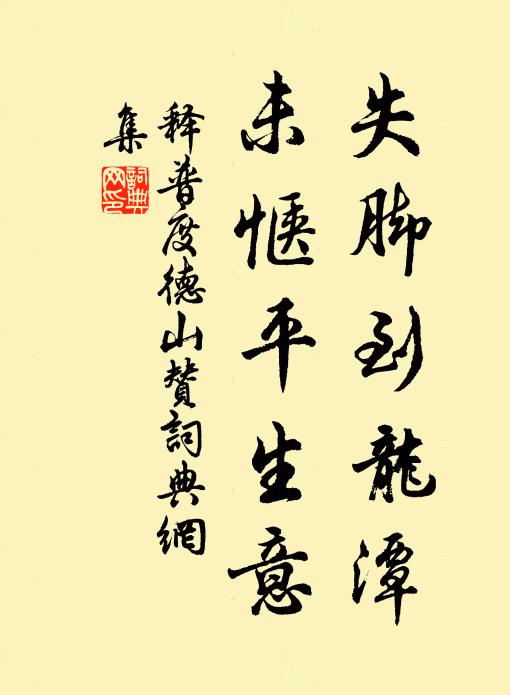 失脚到龍潭
未惬平生意
释普度德山贊詞典網
集
詞典网印